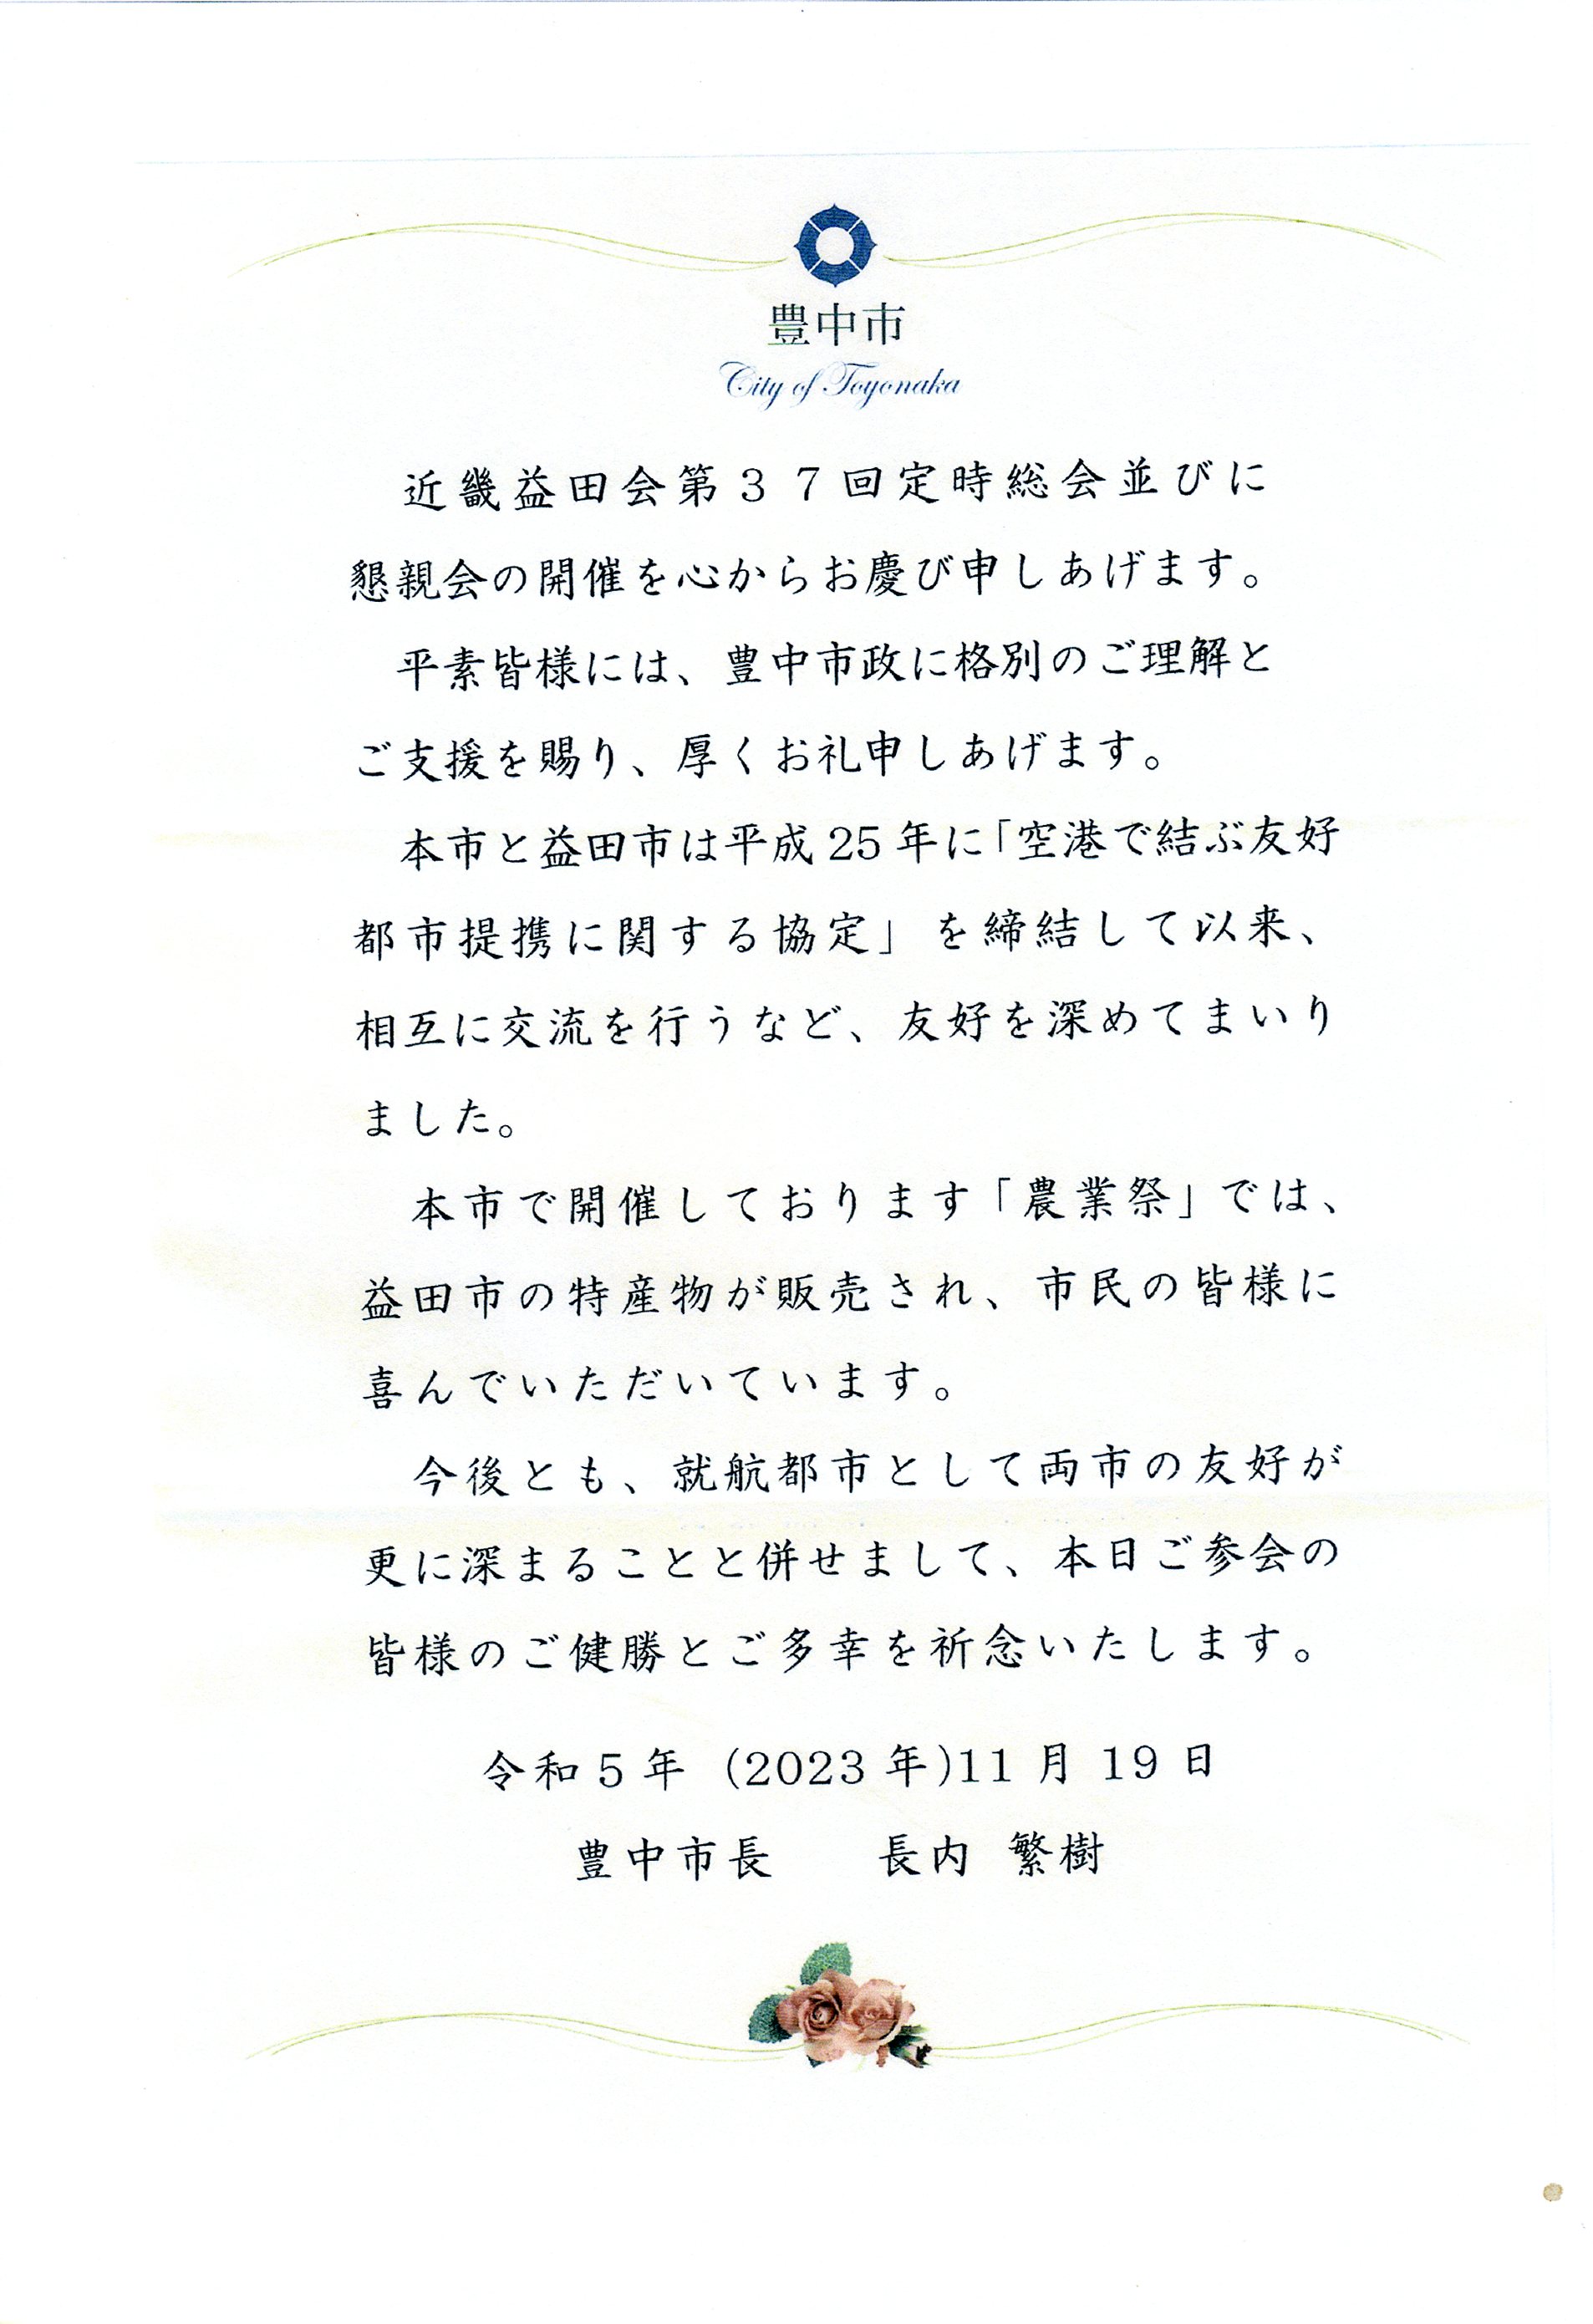 豊中市
City of Toyonaka
近畿益田会第３７回定時総会並びに
懇親会の開催を心からお慶び申しあげます。
平素皆様には、豊中市政に格別のご理解と
ご支援を賜り、厚くお礼申しあげます。
本市と益田市は平成25年に「空港で結ぶ友好
都市提携に関する協定」を締結して以来、
相互に交流を行うなど、友好を深めてまいり
ました。
本市で開催しております「農業祭」では、
益田市の特産物が販売され、市民の皆様に
喜んでいただいています。
今後とも、就航都市として両市の友好が
更に深まることと併せまして、本日ご参会の
皆様のご健勝とご多幸を祈念いたします。
令和5年 (2023年)11月19日
豊中市長　　長内 繁樹